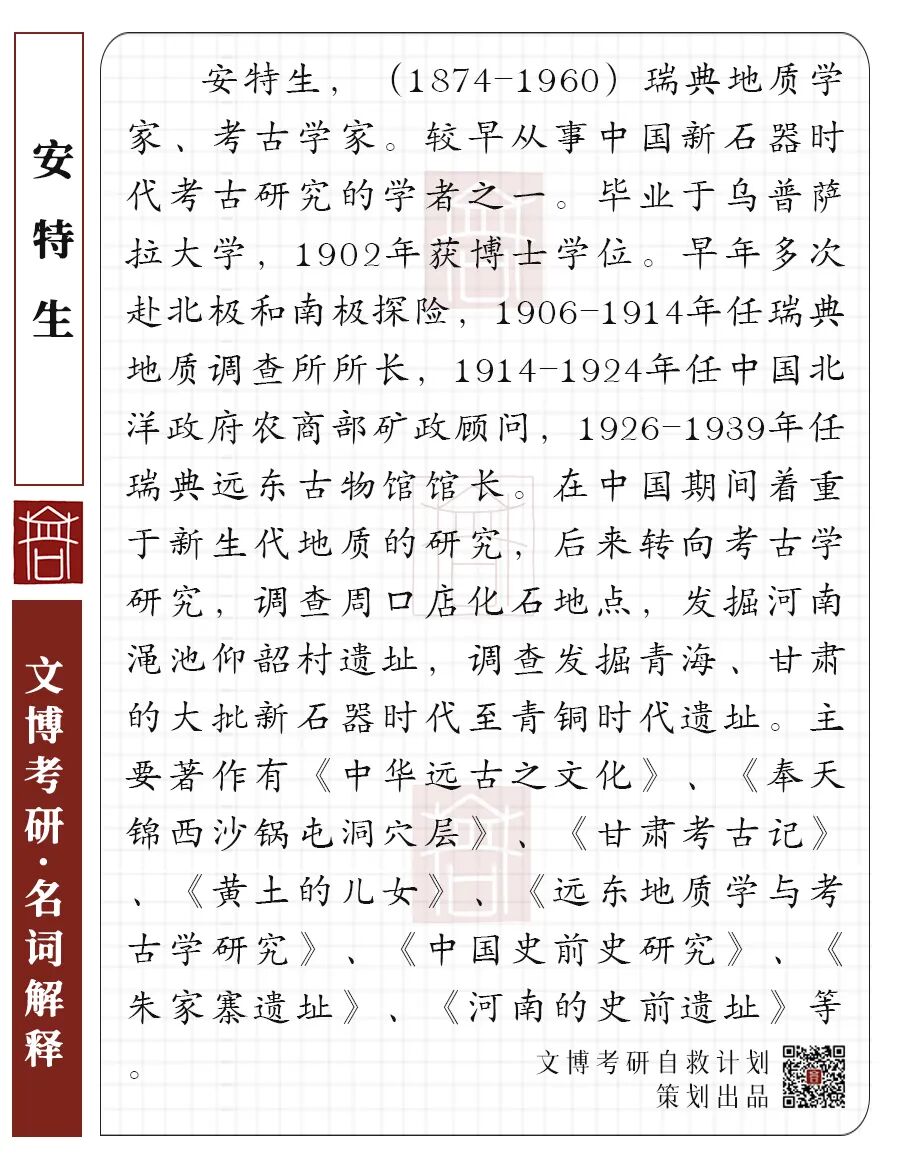 安特生
文博考研·名词解释
安特生，（1874-1960）瑞典地质学
家、考古学家。较早从事中国新石器时
代考古研究的学者之一。毕业于乌普萨
拉大学，1902年获博士学位。早年多次
赴北极和南极探险，1906-1914年任瑞典
地质调查所所长，1914-1924年任中国北
洋政府农商部矿政顾问，1926-1939年任
瑞典远东古物馆馆长。在中国期间着重
于新生代地质的研究，后来转向考古学
研究，调查周口店化石地点，发掘河南
渑池仰韶村遗址，调查发掘青海、甘肃
的大批新石器时代至青铜时代遗址。主
要著作有《中华远古之文化》、《奉天
锦西沙锅屯洞穴层》、《甘肃考古记》
、《黄土的儿女》、《远东地质学与考
古学研究》、《中国史前史研究》、《
朱家寨遗址》、《河南的史前遗址》等
。
文博考研自救计划
策划出品